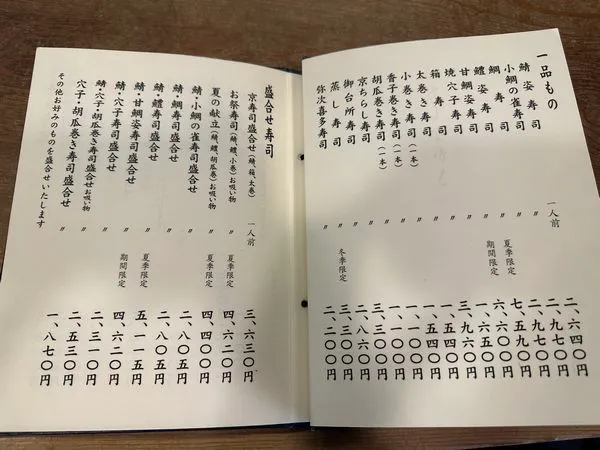 一品もの
鯖姿寿司 一人前 二、六四〇円
小鯛の雀寿司 〃 二、九七〇円
鯛寿司 〃 二、九七〇円
鱧姿寿司 〃 夏季限定 七、五九〇円
甘鯛姿寿司 〃 期間限定 六、六〇〇円
焼穴子寿司 〃 一、六五〇円
箱寿司 〃 三、九六〇円
太巻き寿司 〃 一、五四〇円
小巻き寿司(一本) 〃 一、五四〇円
香子巻き寿司(一本) 〃 一、一〇〇円
胡瓜巻き寿司(一本) 〃 一、一〇〇円
京ちらし寿司 〃 二、八六〇円
御台所寿司 〃 三、三〇〇円
蒸し寿司 〃 冬季限定 三、三〇〇円
弥次喜多寿司 〃 二、二〇〇円
盛合せ寿司
京寿司盛合せ(鯖、箱、太巻) 一人前 三、六三〇円
お祭寿司(鯖、鱧、小巻)お吸い物 〃 夏季限定 四、六二〇円
夏の献立(鯖、鱧、胡瓜巻)お吸い物 〃 夏季限定 四、四〇〇円
鯖・小鯛の雀寿司盛合せ 〃 二、八〇五円
鯖・鯛寿司盛合せ 〃 二、八〇五円
鯖・鱧寿司盛合せ 〃 夏季限定 五、一一五円
鯖・甘鯛姿寿司盛合せ 〃 期間限定 四、六二〇円
鯖・穴子寿司盛合せ 〃 二、三一〇円
鯖・穴子・胡瓜巻き寿司盛合せお吸い物 〃 二、五三〇円
穴子・胡瓜巻き寿司盛合せ 〃 一、八七〇円
その他お好みのものを盛合せいたします